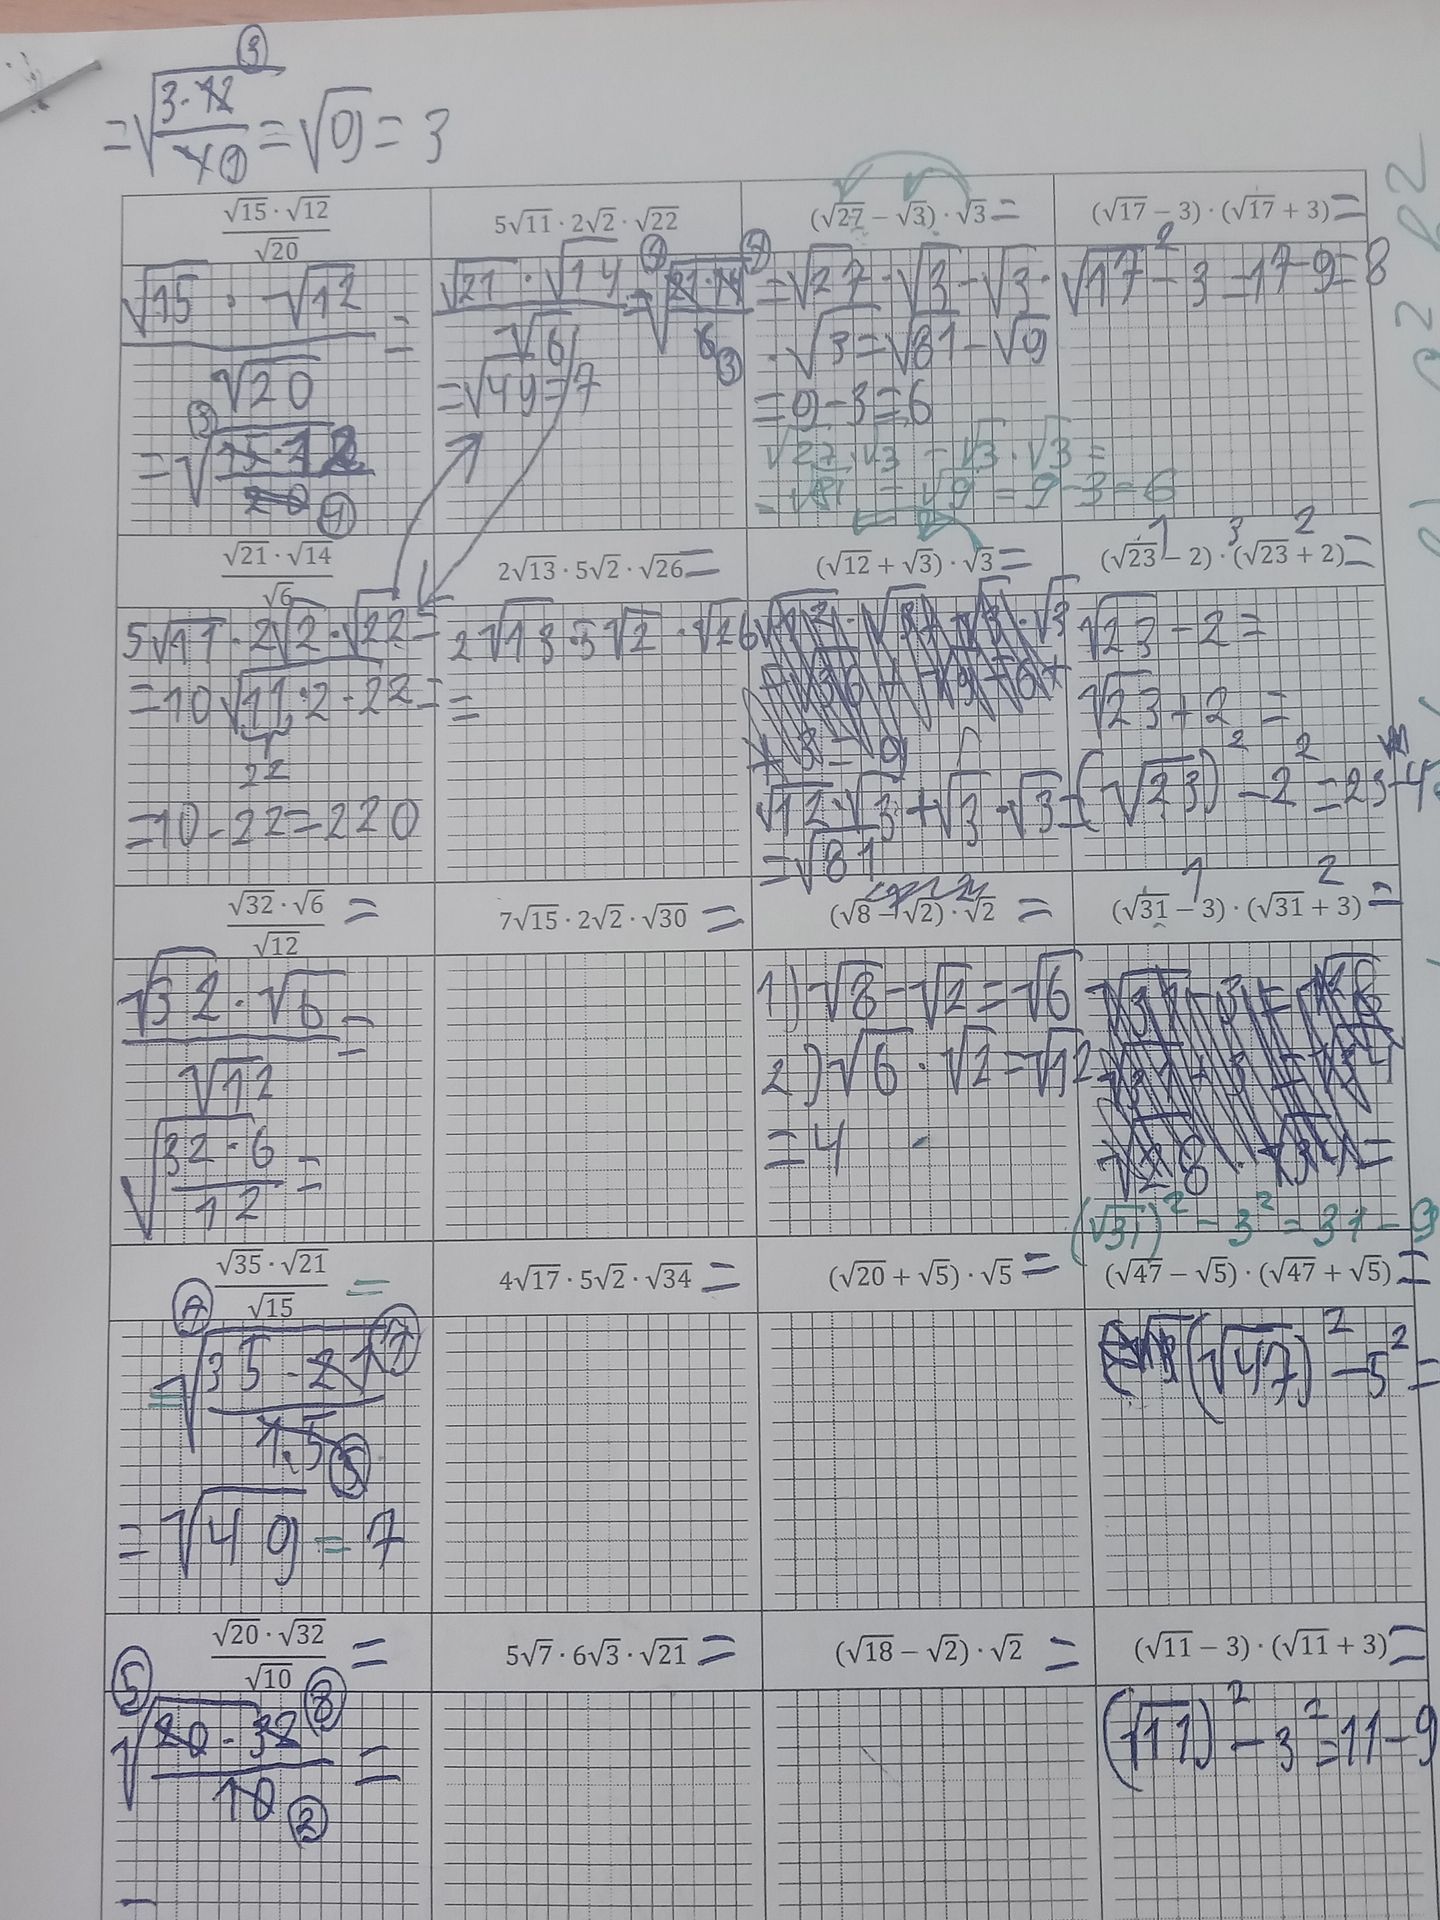 = √(3·12/10) = √9 = 3
√15 · √12 / √20
5√11 · 2√2 · √22
(√27 − √3) · √3 =
(√17 − 3) · (√17 + 3) =
√15 · √12 / √20 =
= √(15·12/20)
√21 · √14 / √6 = √(21·14/6)
= √49 = 7
= √27 · √3 − √3 ·
· √3 = √81 − √9
= 9 − 3 = 6
√27 · √3 − √3 · √3 =
= √81 − √9 = 9 − 3 = 6
√17² − 3 = 17 − 9 = 8
√21 · √14 / √6
2√13 · 5√2 · √26 =
(√12 + √3) · √3 =
(√23 − 2) · (√23 + 2) =
5√11 · 2√2 · √22 =
= 10√11·2·22 =
22
= 10 · 22 = 220
2√13 · 5√2 · √26
=
√12 · √3 + √3 · √3 =
= √81
√23 − 2 =
√23 + 2 =
(√23)² − 2² = 23 − 4
√32 · √6 / √12 =
7√15 · 2√2 · √30 =
(√8 − √2) · √2 =
(√31 − 3) · (√31 + 3) =
√32 · √6 / √12 =
√(32·6/12) =
1) √8 − √2 = √6
2) √6 · √2 = √12
= 4
(√31)² − 3² = 31 − 9
√35 · √21 / √15 =
4√17 · 5√2 · √34 =
(√20 + √5) · √5 =
(√47 − √5) · (√47 + √5) =
= √(35·21/15)
= √49 = 7
(√47)² − 5² =
√20 · √32 / √10 =
5√7 · 6√3 · √21 =
(√18 − √2) · √2 =
(√11 − 3) · (√11 + 3) =
√(20·32/10) =
(√11)² − 3² = 11 − 9